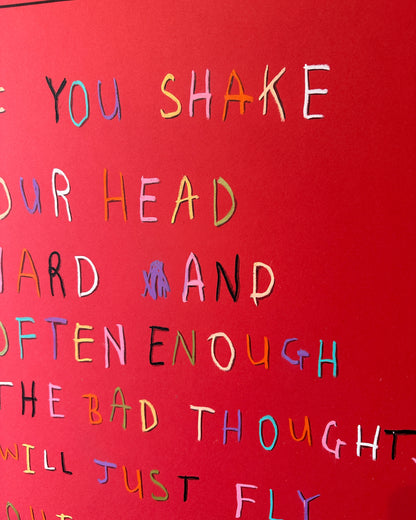 YOU SHAKE
OUR HEAD
HARD AND
OFTEN ENOUGH
THE BAD THOUGHT
WILL JUST
FLY